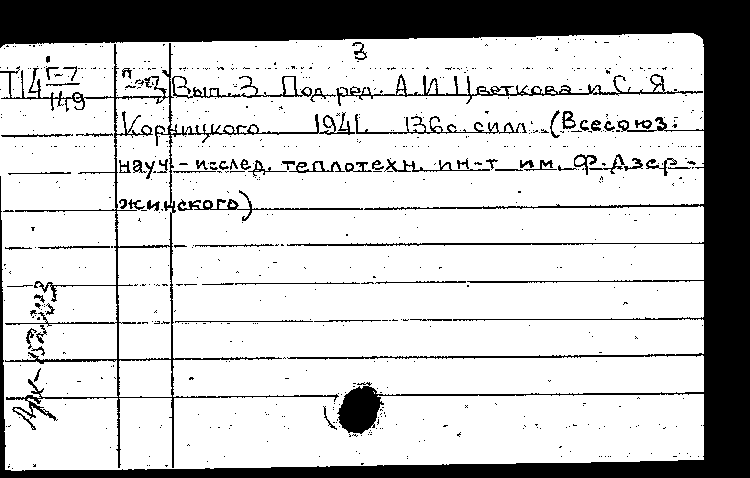 3
Т14 Г-7/149
Вып. 3. Под ред. А.И. Цветкова и С.Я.
Корницкого 1941. 136с. с илл. (Всесоюз.
науч.-исслед. теплотехн. ин-т им. Ф. Дзер-
жинского)
Арх-